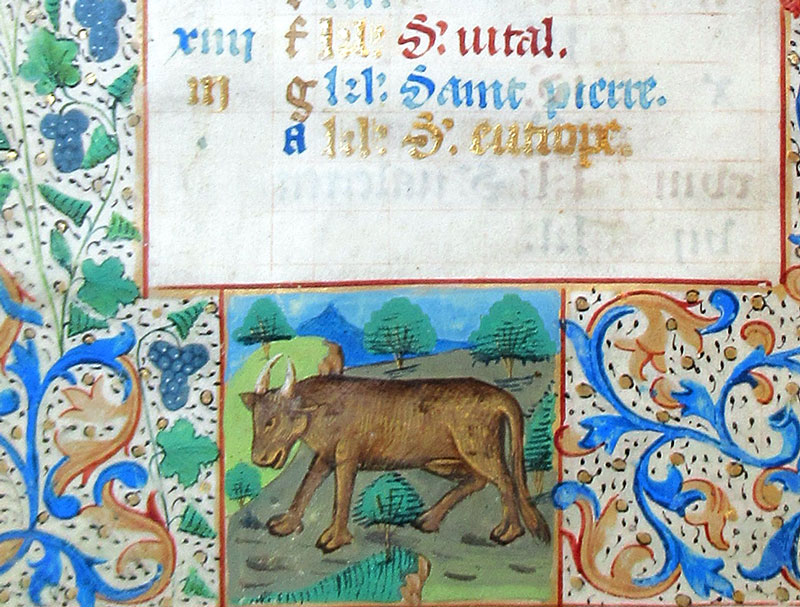 xiiij f kl' S'. uital.
iij g kl' Saint pierre.
A kl' S'. eutrope.